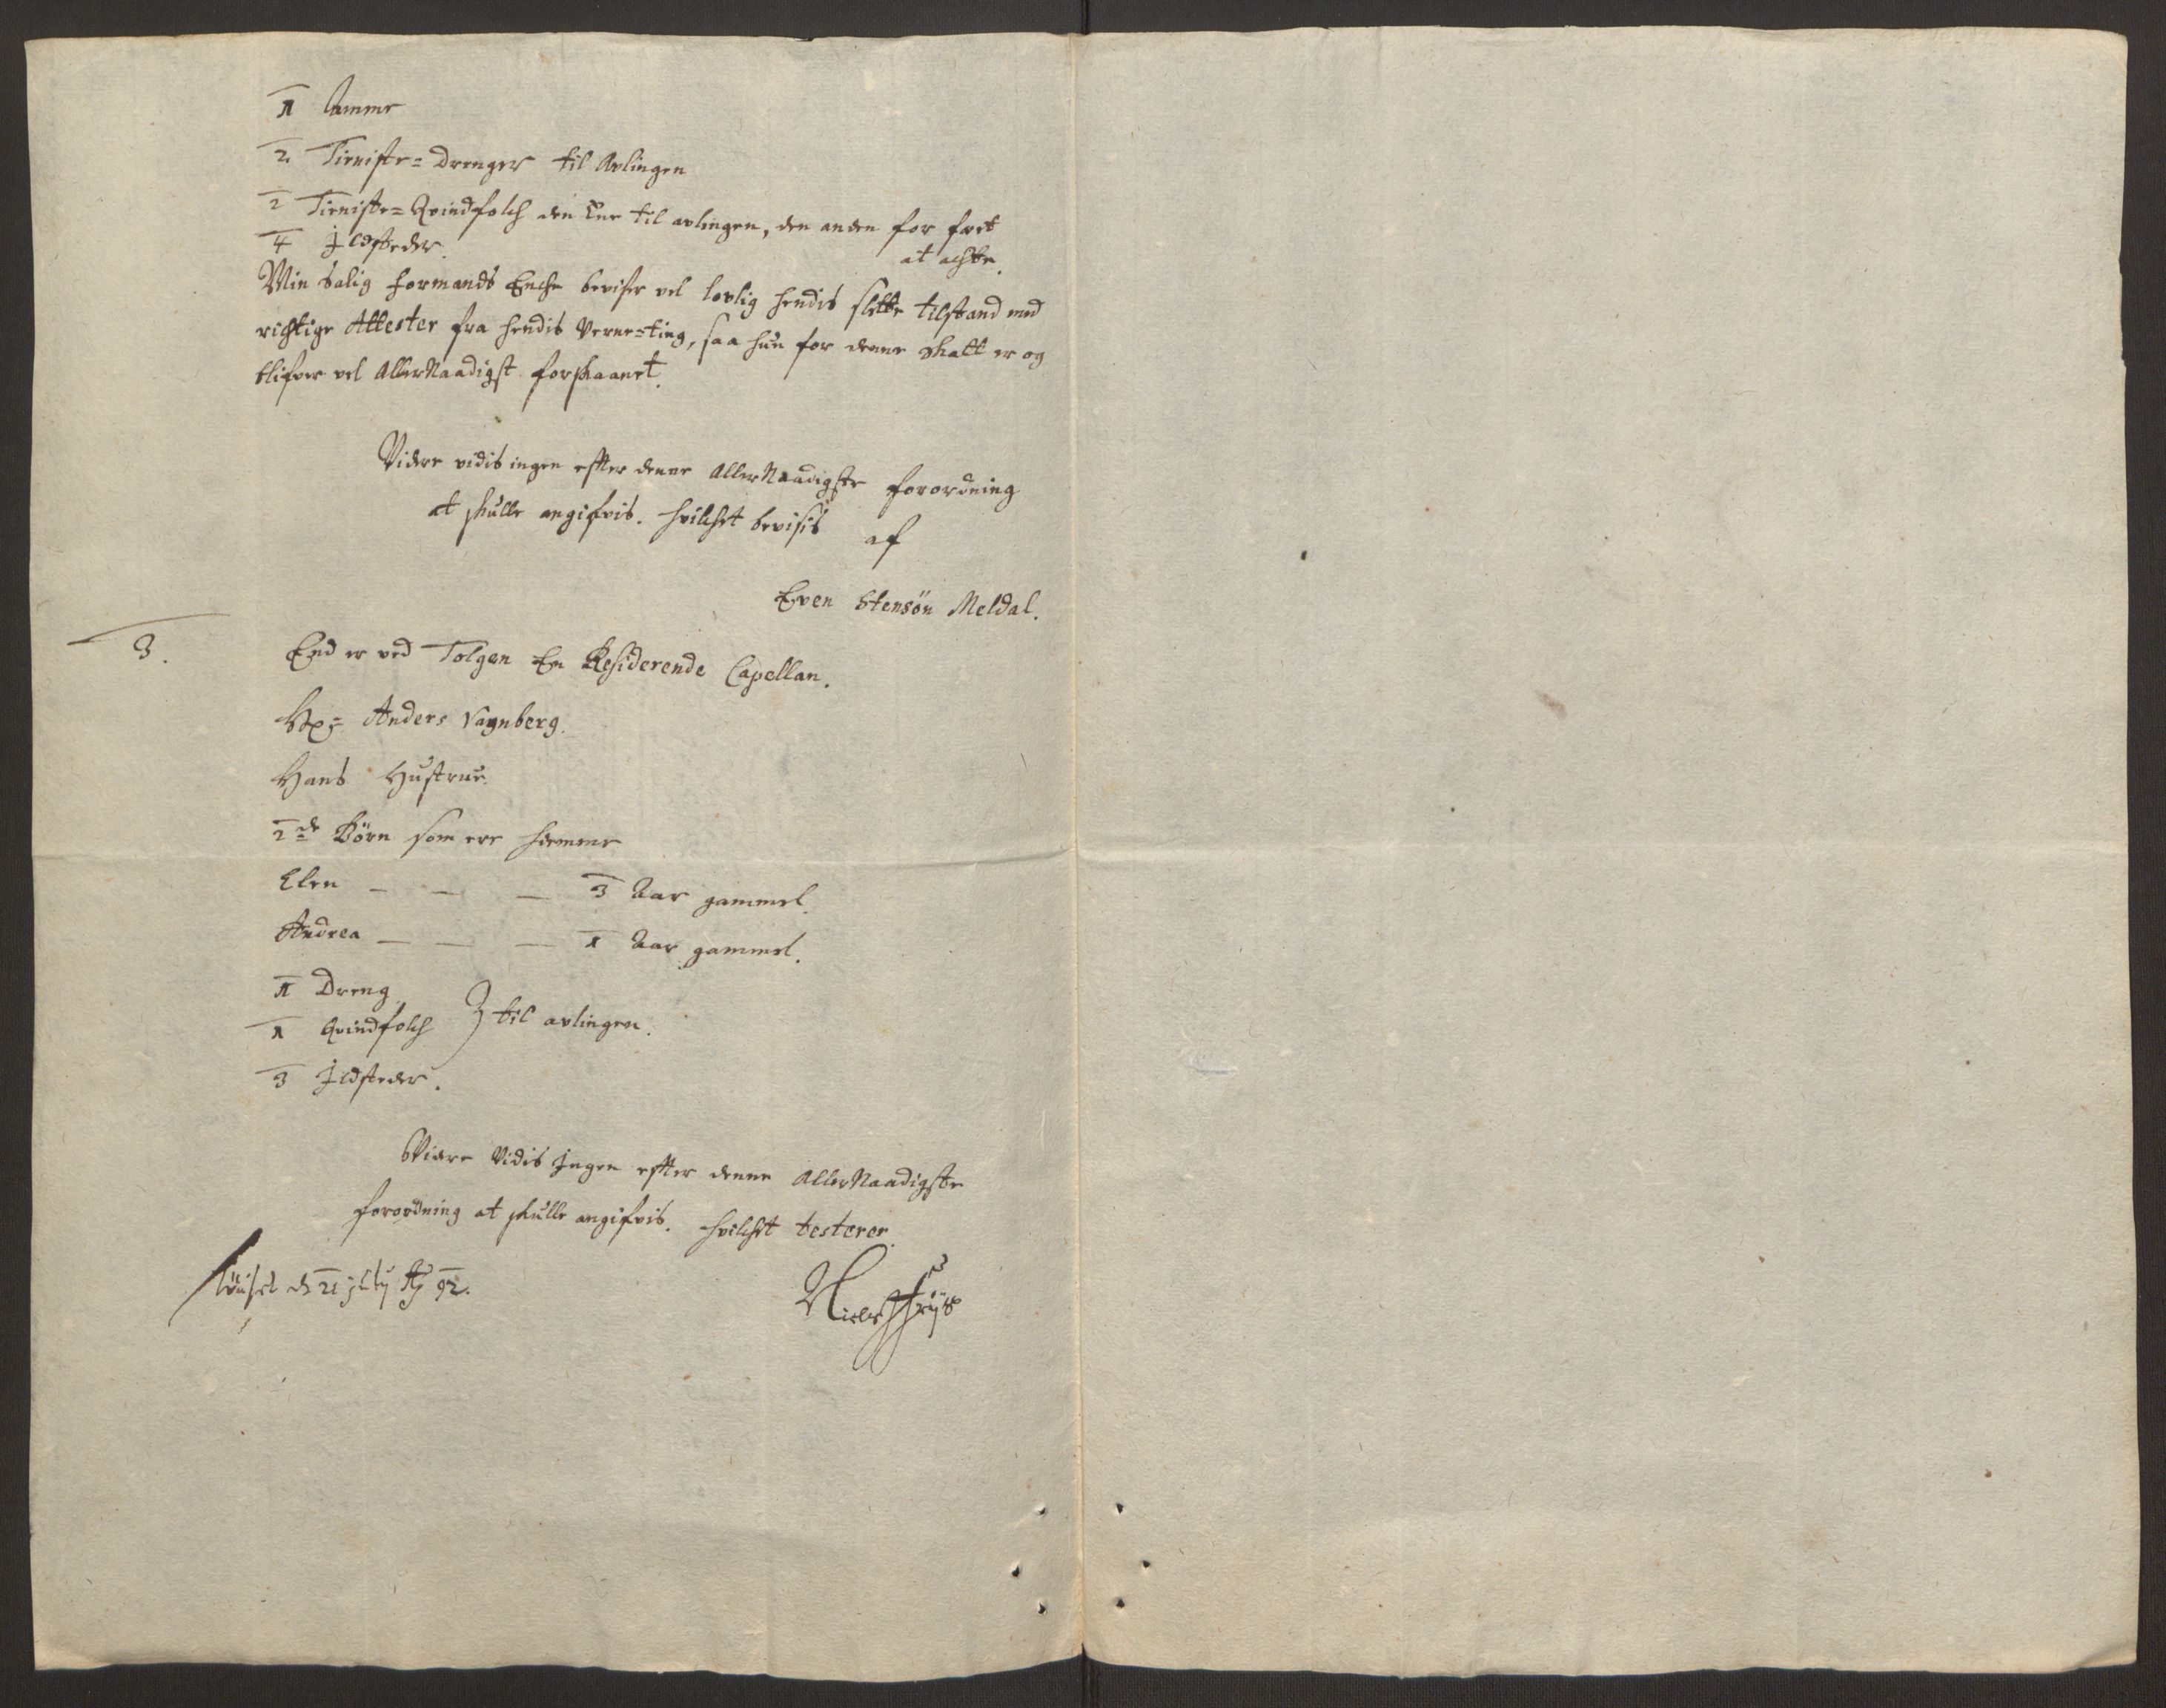 1 Amme
2 Tieniste= Drenger til Avlingen
2 Tieniste= Qvindfolch den Ene til avlingen, den anden for fæet
at achte.
4 Jldsteder.
Min Salig formands Enche beviser vel lovlig hendis slette tilstand med
richtige Attester fra hendis Verne=ting, saa hun for denne Skatt er og
blifver vel AllerNaadigst forskaanet.
Videre vidis ingen efter denne AllerNaadigste forordning
at skulle angifvis. hvilchet bevisis af
Even Stensön Meldal.
3. End er ved Tolgen En Residerende Capellan.
Hr= Anders
Hans Hustrue.
2de Börn som ere hiemme
Elen — — — 3 Aar gammel.
Andrea — — — 1 Aar gammel.
1 Dreng
1 Qvindfolch } til avlingen.
3 Jldsteder.
Videre Vidis Jngen efter denne AllerNaadigste
forordning at skulle angifvis. hvilchet testerer.
d 21 july Ao 92.